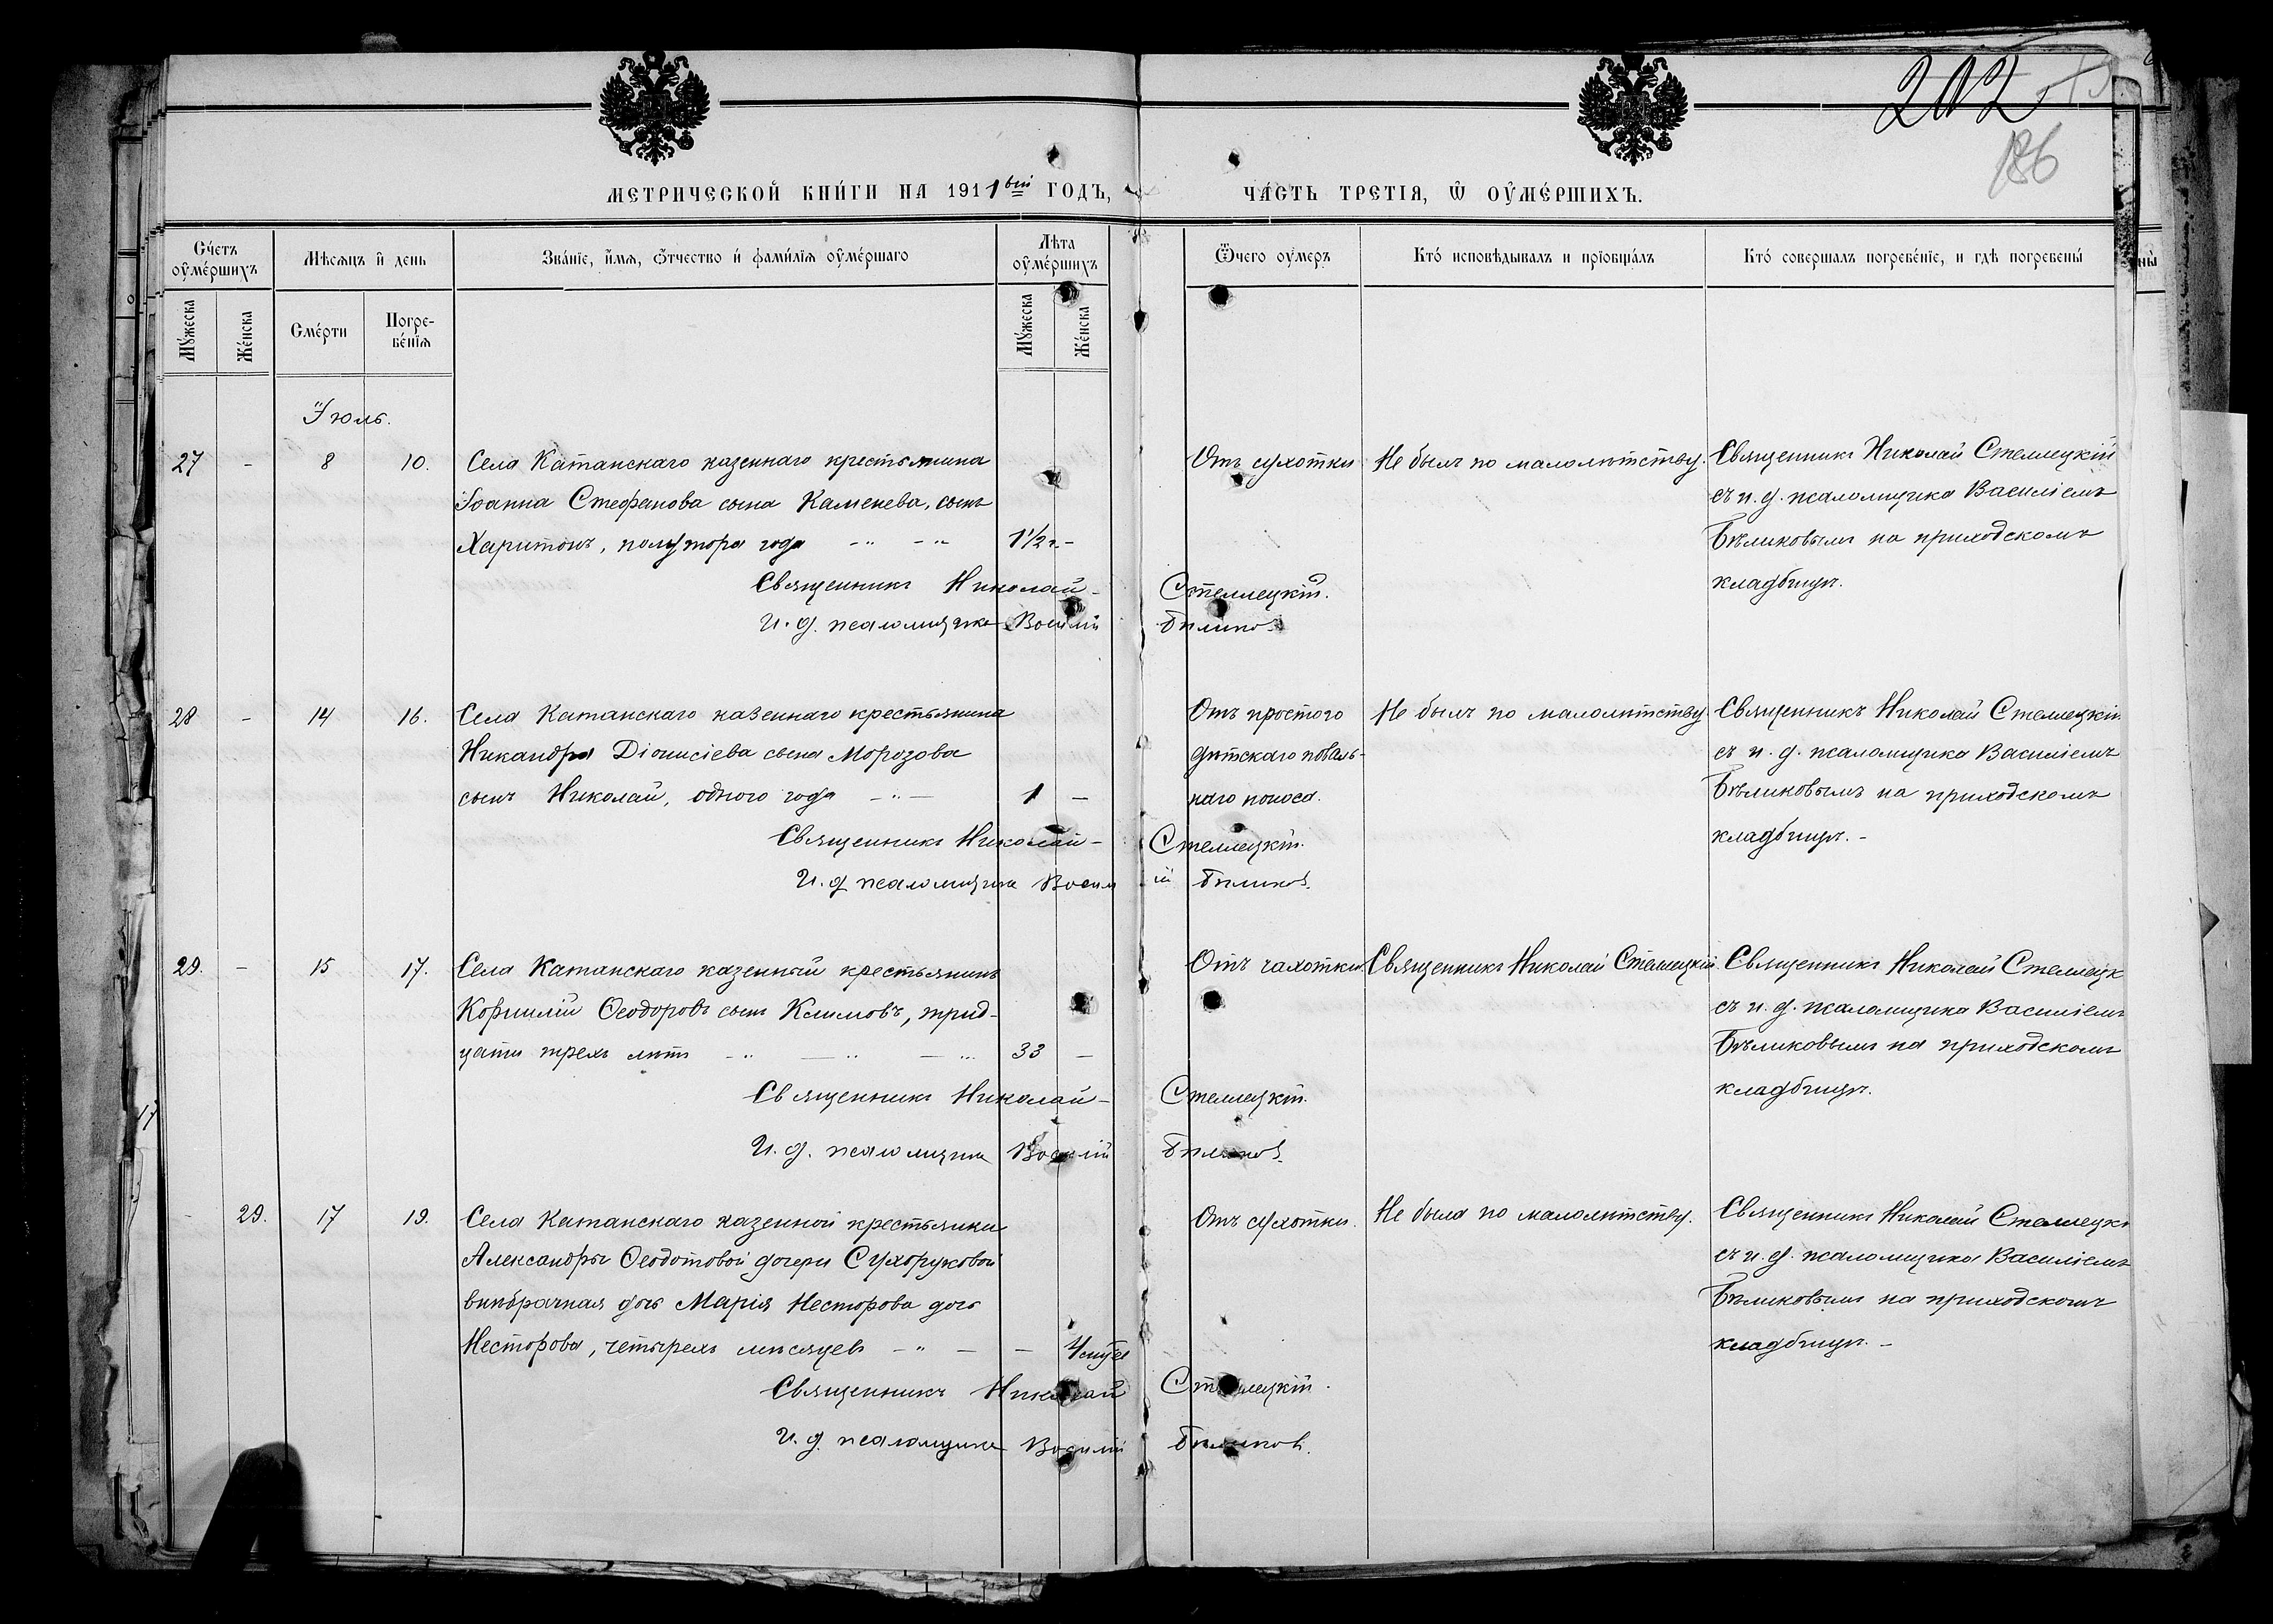 202
186
МЕТРИЧЕСКОЙ КНИ́ГИ НА 1911ый ГОДЪ,
ЧА́СТЬ ТРЕТІЯ, Ѿ ОУ҆МЕ́РШИХЪ.
Сче́тъ оу҆ме́ршихъ
Мѣсяцъ и҆ день
Зва́ніе, и҆́мя, ѻ҆́тчество и҆ фами́лія оу҆ме́ршаго
Лѣта оу҆ме́ршихъ
Ѿчего оу҆меръ
Кто́ исповѣ́дывалъ и пріобща́лъ
Кто́ совершалъ погребе́ніе, и гдѣ погребены́
Му́жеска
Же́нска
Сме́рти
Погре-
бе́нія
Му́жеска
Же́нска
Іюль.
27 - 8 10. Села Катанскаго казеннаго крестьянина
Іоанна Стефанова сына Каменева, сынъ
Харитонъ, полутора года 1½ г. -
Отъ сухотки
Не былъ по малолѣтству.
Священникъ Николай Стеллецкій
съ и. д. псаломщика Василіемъ
Бѣликовымъ на приходскомъ
кладбищѣ.
Священникъ Николай Стеллецкій.
И. д. псаломщика Василій Бѣликовъ
28 - 14 16. Села Катанскаго казеннаго крестьянина
Никандра Діонисіева сына Морозова
сынъ Николай, одного года 1 -
Отъ простого
дѣтскаго поваль-
наго поноса.
Не былъ по малолѣтству
Священникъ Николай Стеллецкій
съ и. д. псаломщика Василіемъ
Бѣликовымъ на приходскомъ
кладбищѣ. -
Священникъ Николай Стеллецкій.
И. д. псаломщика Василій Бѣликовъ.
29. - 15 17. Села Катанскаго казенный крестьянинъ
Корнилій Ѳеодоровъ сынъ Климовъ, трид-
цати трехъ лѣтъ 33 -
Отъ чахотки
Священникъ Николай Стеллецкій
Священникъ Николай Стеллецк
съ и. д. псаломщика Василіемъ
Бѣликовымъ на приходскомъ
кладбищѣ.
Священникъ Николай Стеллецкій.
И. д. псаломщика Василій Бѣликовъ.
- 29. 17 19. Села Катанскаго казенной крестьянки
Александры Ѳеодотовой дочери Сухоруковой
внѣбрачная дочь Марія Несторова дочь
Несторова, четырехъ мѣсяцевъ - 4 мѣс
Отъ сухотки.
Не была по малолѣтству.
Священникъ Николай Стеллецкі
съ и. д. псаломщика Василіемъ
Бѣликовымъ на приходскомъ
кладбищѣ. -
Священникъ Николай Стеллецкій.
И. д. псаломщика Василій Бѣликовъ.